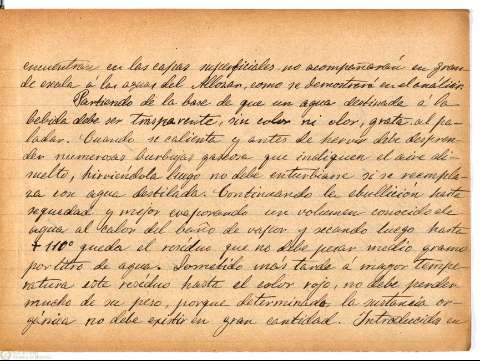 encuentran en las capas superficiales no acompañarán en gran-
de escala á las aguas del Allozar, como se demostrará en el análisis.
Partiendo de la base de que un agua destinada á la
bebida debe ser trasparente, sin color ni olor, grata al pa-
ladar. Cuando se calienta y antes de hervir debe despren-
der numerosas burbujas gaseosas que indiquen el aire di-
suelto, hirviéndola luego no debe enturbiarse si se reempla-
za con agua destilada. Continuando la ebullición hasta
sequedad y mejor evaporando un volumen conocido de
agua al calor del baño de vapor y secando luego hasta
+ 110° queda el residuo que no debe pesar medio gramo
por litro de agua. Sometido más tarde á mayor tempe-
ratura este residuo hasta el color rojo, no debe perder
mucho de su peso, porque determinada la sustancia or-
gánica no debe existir en gran cantidad. Introducida en